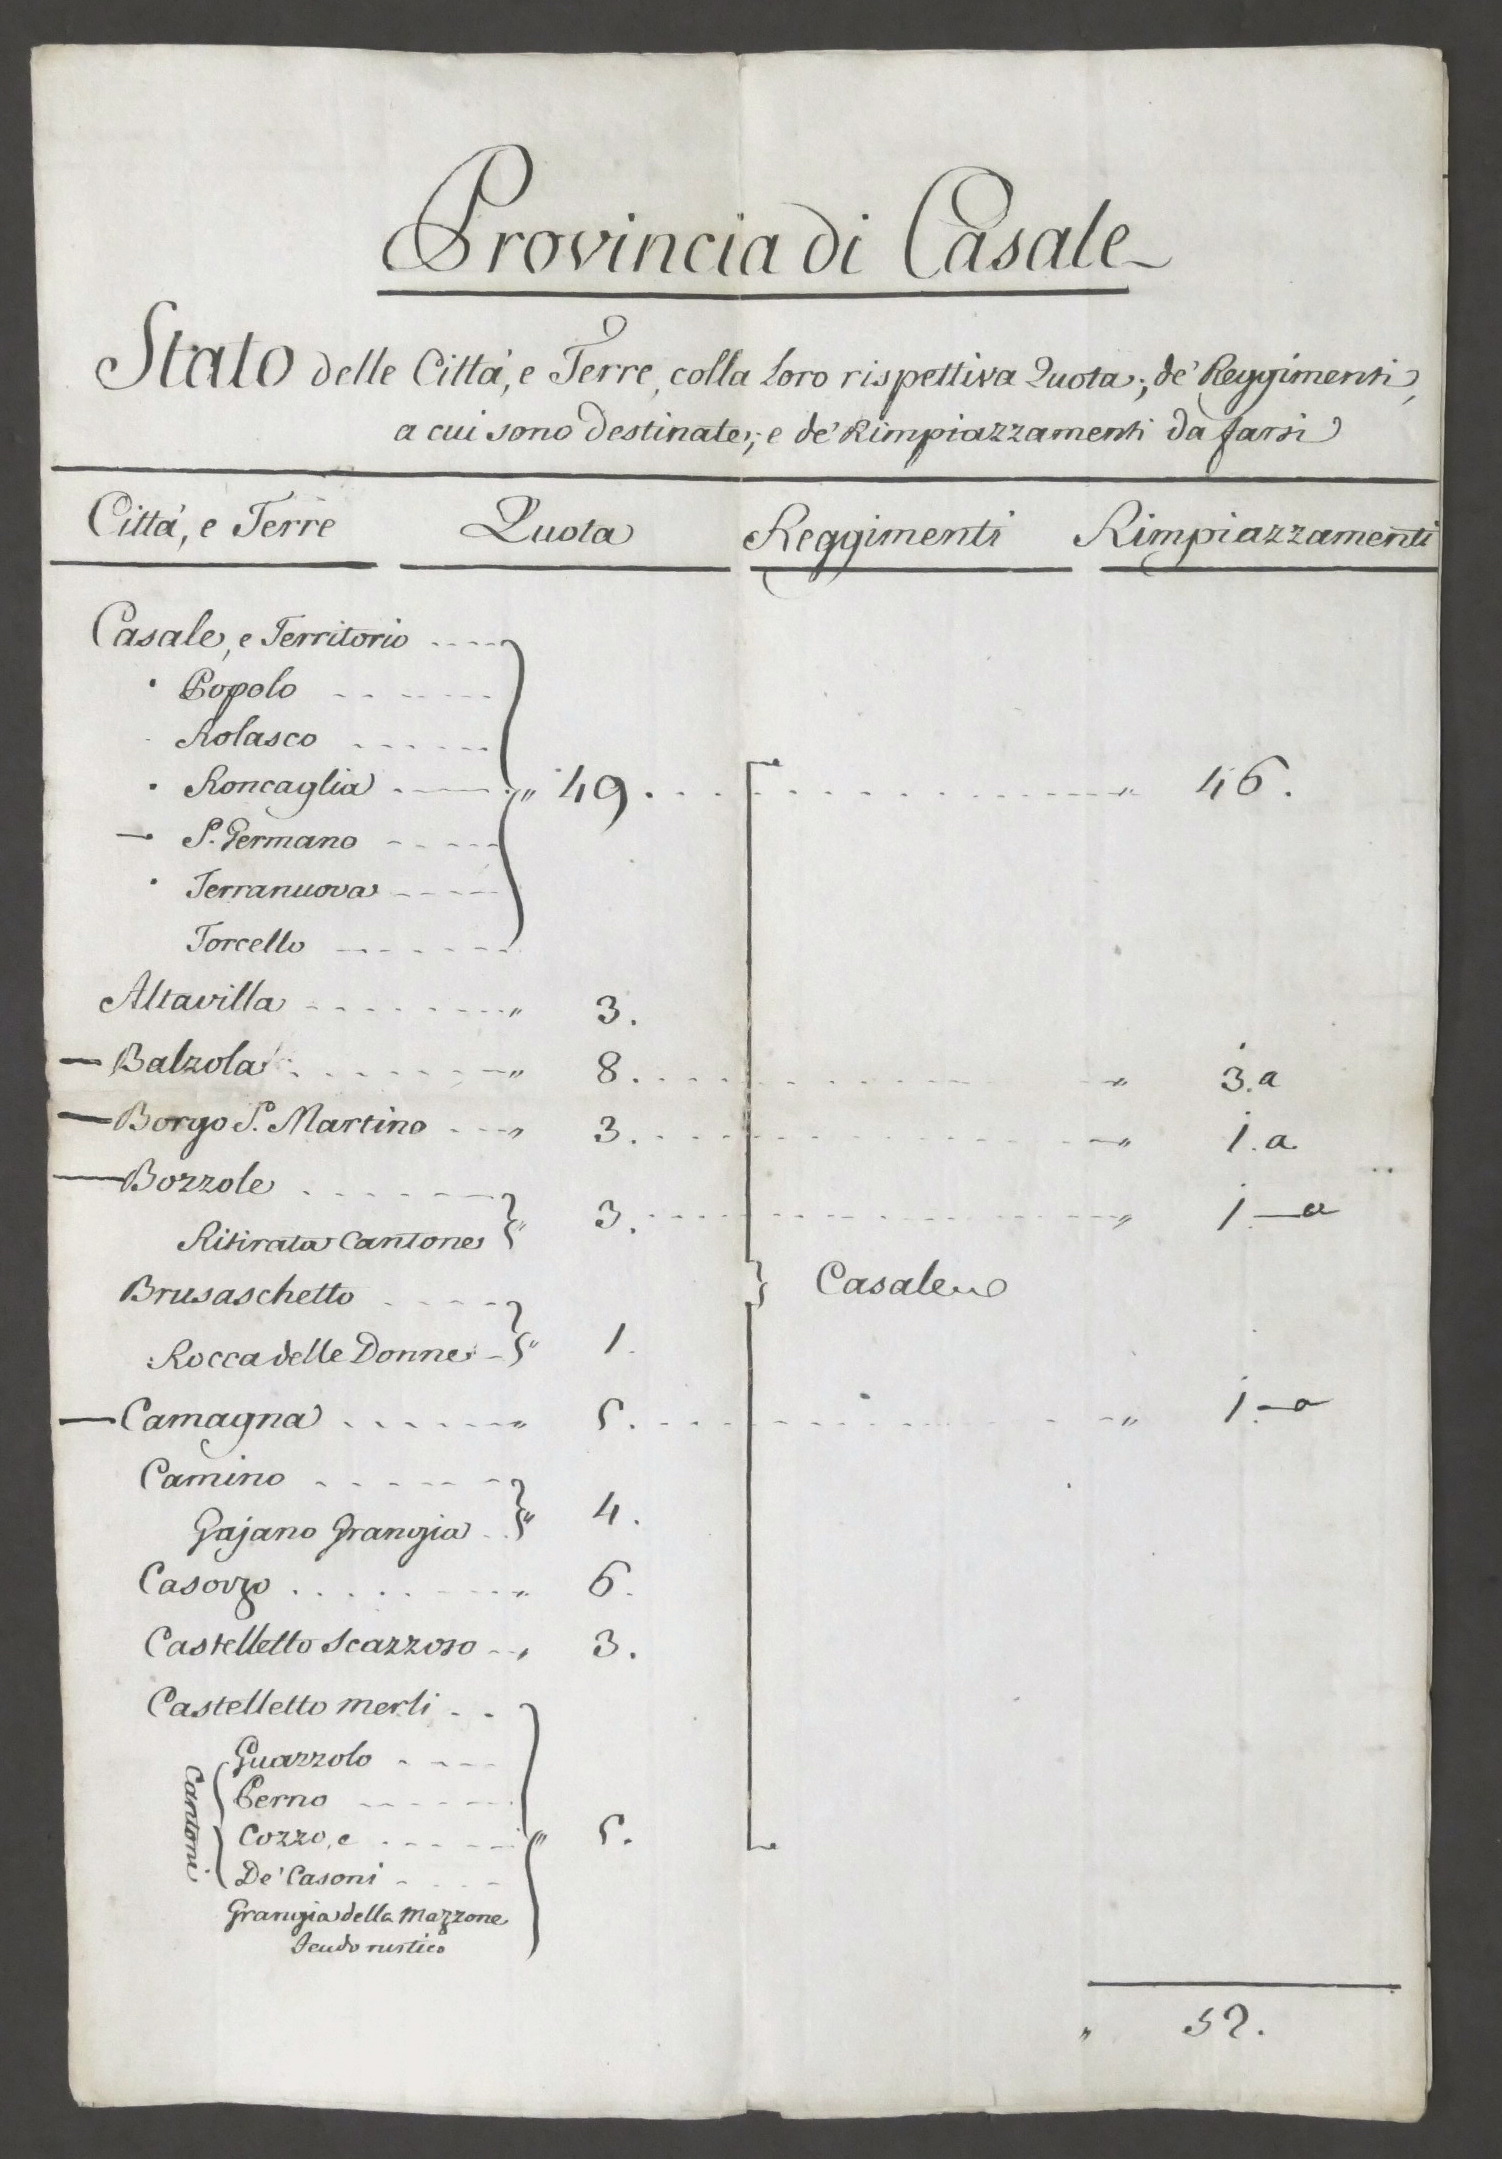 Provincia di Casale
Stato delle Città, e Terre, colla loro rispettiva Quota; de' Reggimenti,
a cui sono destinate; e de' Rimpiazzamenti da farsi
Città, e Terre Quota Reggimenti Rimpiazzamenti
Casale, e Territorio
Popolo
Rolasco
Roncaglia " 49. " 46.
S. Germano
Terranuova
Torcello
Altavilla " 3.
Balzola " 8. " 3. a
Borgo S. Martino " 3. " 1. a
Bozzole
Ritirata Cantone " 3. " 1. a
Brusaschetto
Casale
Rocca delle Donne " 1.
Camagna " 5. " 1. a
Camino
Gajano Grangia " 4.
Casorzo " 6.
Castelletto Scazzoso " 3.
Castelletto merli
Cantoni
Guazzolo
Perno
Cozzo, e " 5.
De' Casoni
Grangia della Mazzone
feudo rustico
" 52.